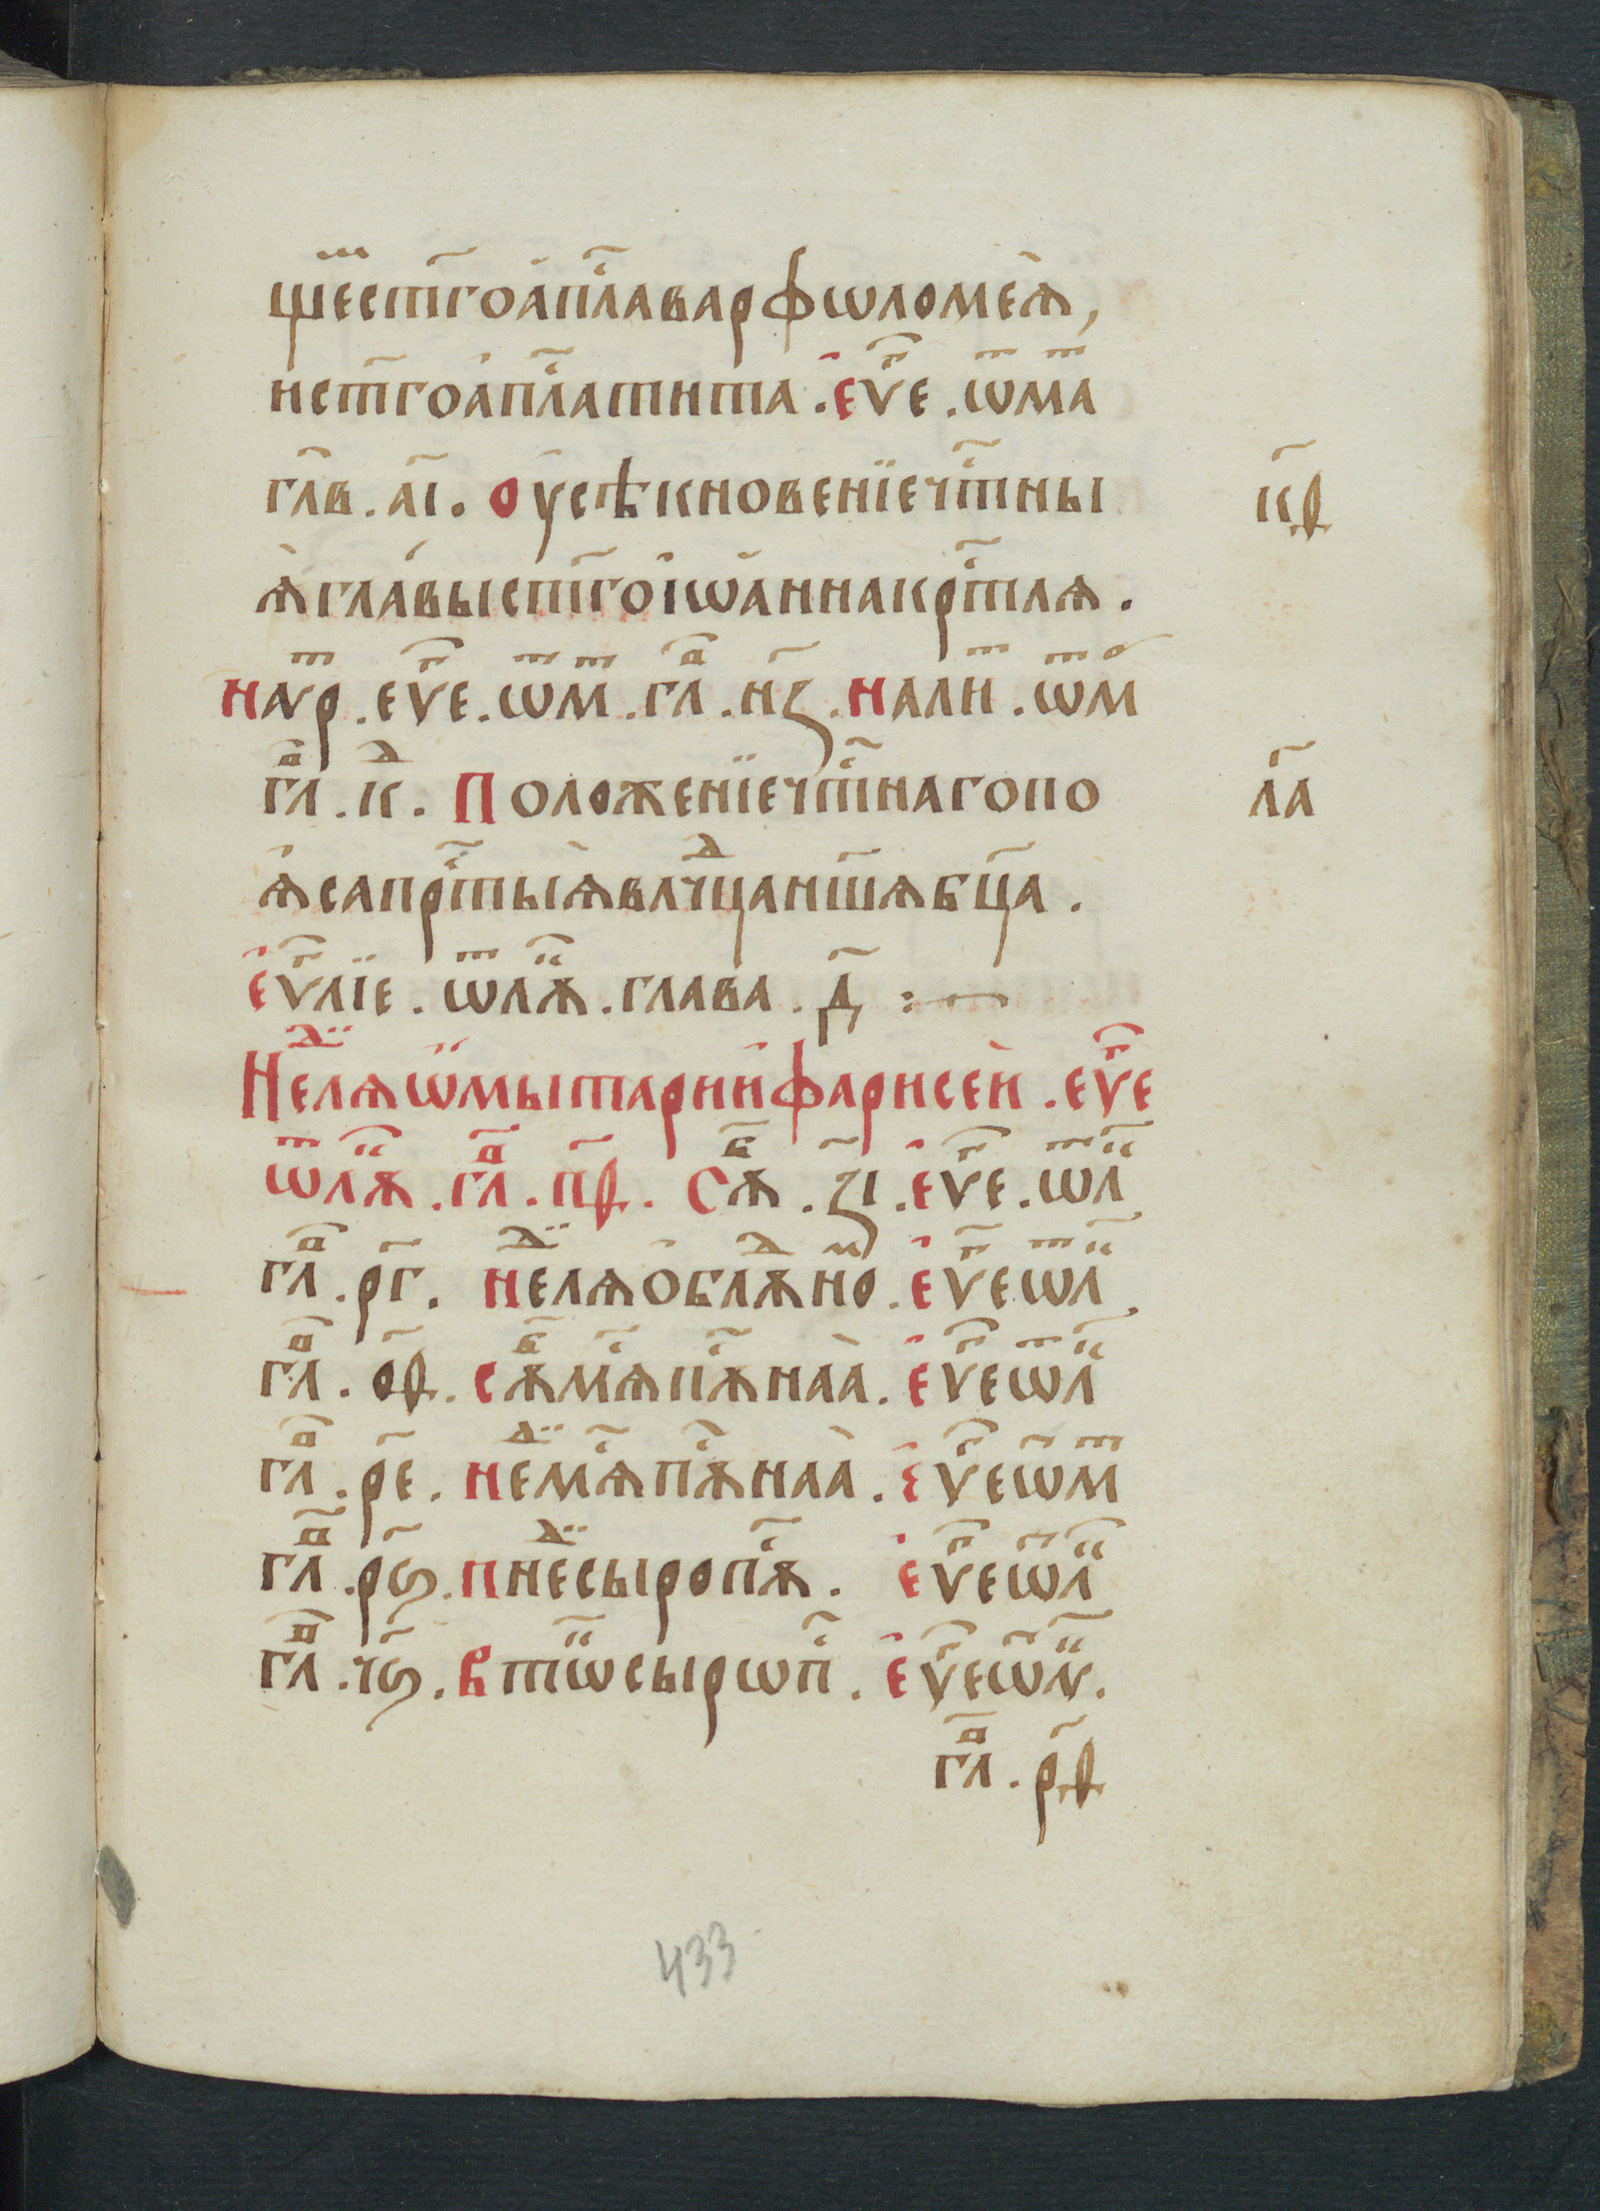 щеⷨ҇стг҃оап҇лаварфѡломеѧ,
истг҃оап҇латита. еѵⷢ҇е. ѿмаⷮ
гл҃в. а҃і. оусѣкновенїечⷭ҇тны к҃ѳ
ѧглавыст҃гоіѡаннакрⷭ҇тлѧ.
наѵⷮр. еѵⷢ҇е. ѿмⷮ. глⷡ҇. н҃з. Налиⷮ. ѿмⷮ
глⷡ҇. кⷣ. Положенїечⷭ҇тнагопо л҃а
ѧсапрⷭ҇тыѧвлⷣчцан҃шѧбц҃а.
еѵⷢ҇лїе. ѿлꙋⷦ҇. глава. д҃ :~
Неⷣ҇лѧѡмытариифарисеи. еѵⷢ҇е
ѿлꙋⷦ҇. глⷡ҇. п҃ѳ. Сꙋⷠ҇. з҃і. еѵⷢ҇е. ѿлⷦ҇
глⷡ҇. р҃г. Неⷣлѧоблꙋⷣноⷨ. еѵⷢ҇еѿлⷦ҇.
глⷡ҇. о҃ѳ. сꙋⷠ҇мѧⷭ҇пꙋⷭ҇наа. еѵⷢ҇еѿлⷦ҇
глⷡ҇. р҃е. Неⷣмѧⷭ҇пꙋⷭ҇наа. еѵⷢ҇еѿмⷮ
глⷡ҇. р҃ѕ. пнеⷣсыропꙋⷭ҇. еѵⷢ҇еѿлⷦ҇
глⷡ҇. ч҃ѕ. Втⷦ҇ѡсырѡпⷭ҇. еѵⷢ҇еѿлⷦ҇.
глⷡ҇. р҃ѳ
433